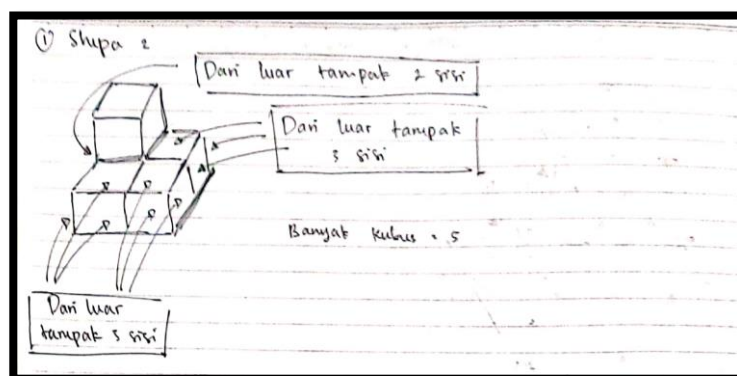 ① Shipa 2
Dari luar tampak 2 sisi
Dari luar tampak
3 sisi
Banyak kubus = 5
Dari luar
tampak 3 sisi